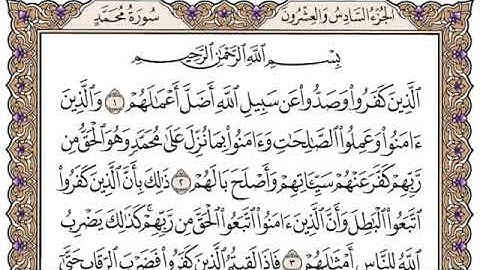 الجزء السادس والعشرون
سورة محمد
بِسْمِ اللَّهِ الرَّحْمَٰنِ الرَّحِيمِ
الَّذِينَ كَفَرُوا وَصَدُّوا عَن سَبِيلِ اللَّهِ أَضَلَّ أَعْمَٰلَهُمْ ١ وَالَّذِينَ
ءَامَنُوا وَعَمِلُوا الصَّٰلِحَٰتِ وَءَامَنُوا بِمَا نُزِّلَ عَلَىٰ مُحَمَّدٍ وَهُوَ الْحَقُّ مِن
رَّبِّهِمْ كَفَّرَ عَنْهُمْ سَيِّـَٔاتِهِمْ وَأَصْلَحَ بَالَهُمْ ٢ ذَٰلِكَ بِأَنَّ الَّذِينَ كَفَرُوا
اتَّبَعُوا الْبَٰطِلَ وَأَنَّ الَّذِينَ ءَامَنُوا اتَّبَعُوا الْحَقَّ مِن رَّبِّهِمْ ۚ كَذَٰلِكَ يَضْرِبُ
اللَّهُ لِلنَّاسِ أَمْثَٰلَهُمْ ٣ فَإِذَا لَقِيتُمُ الَّذِينَ كَفَرُوا فَضَرْبَ الرِّقَابِ حَتَّىٰ